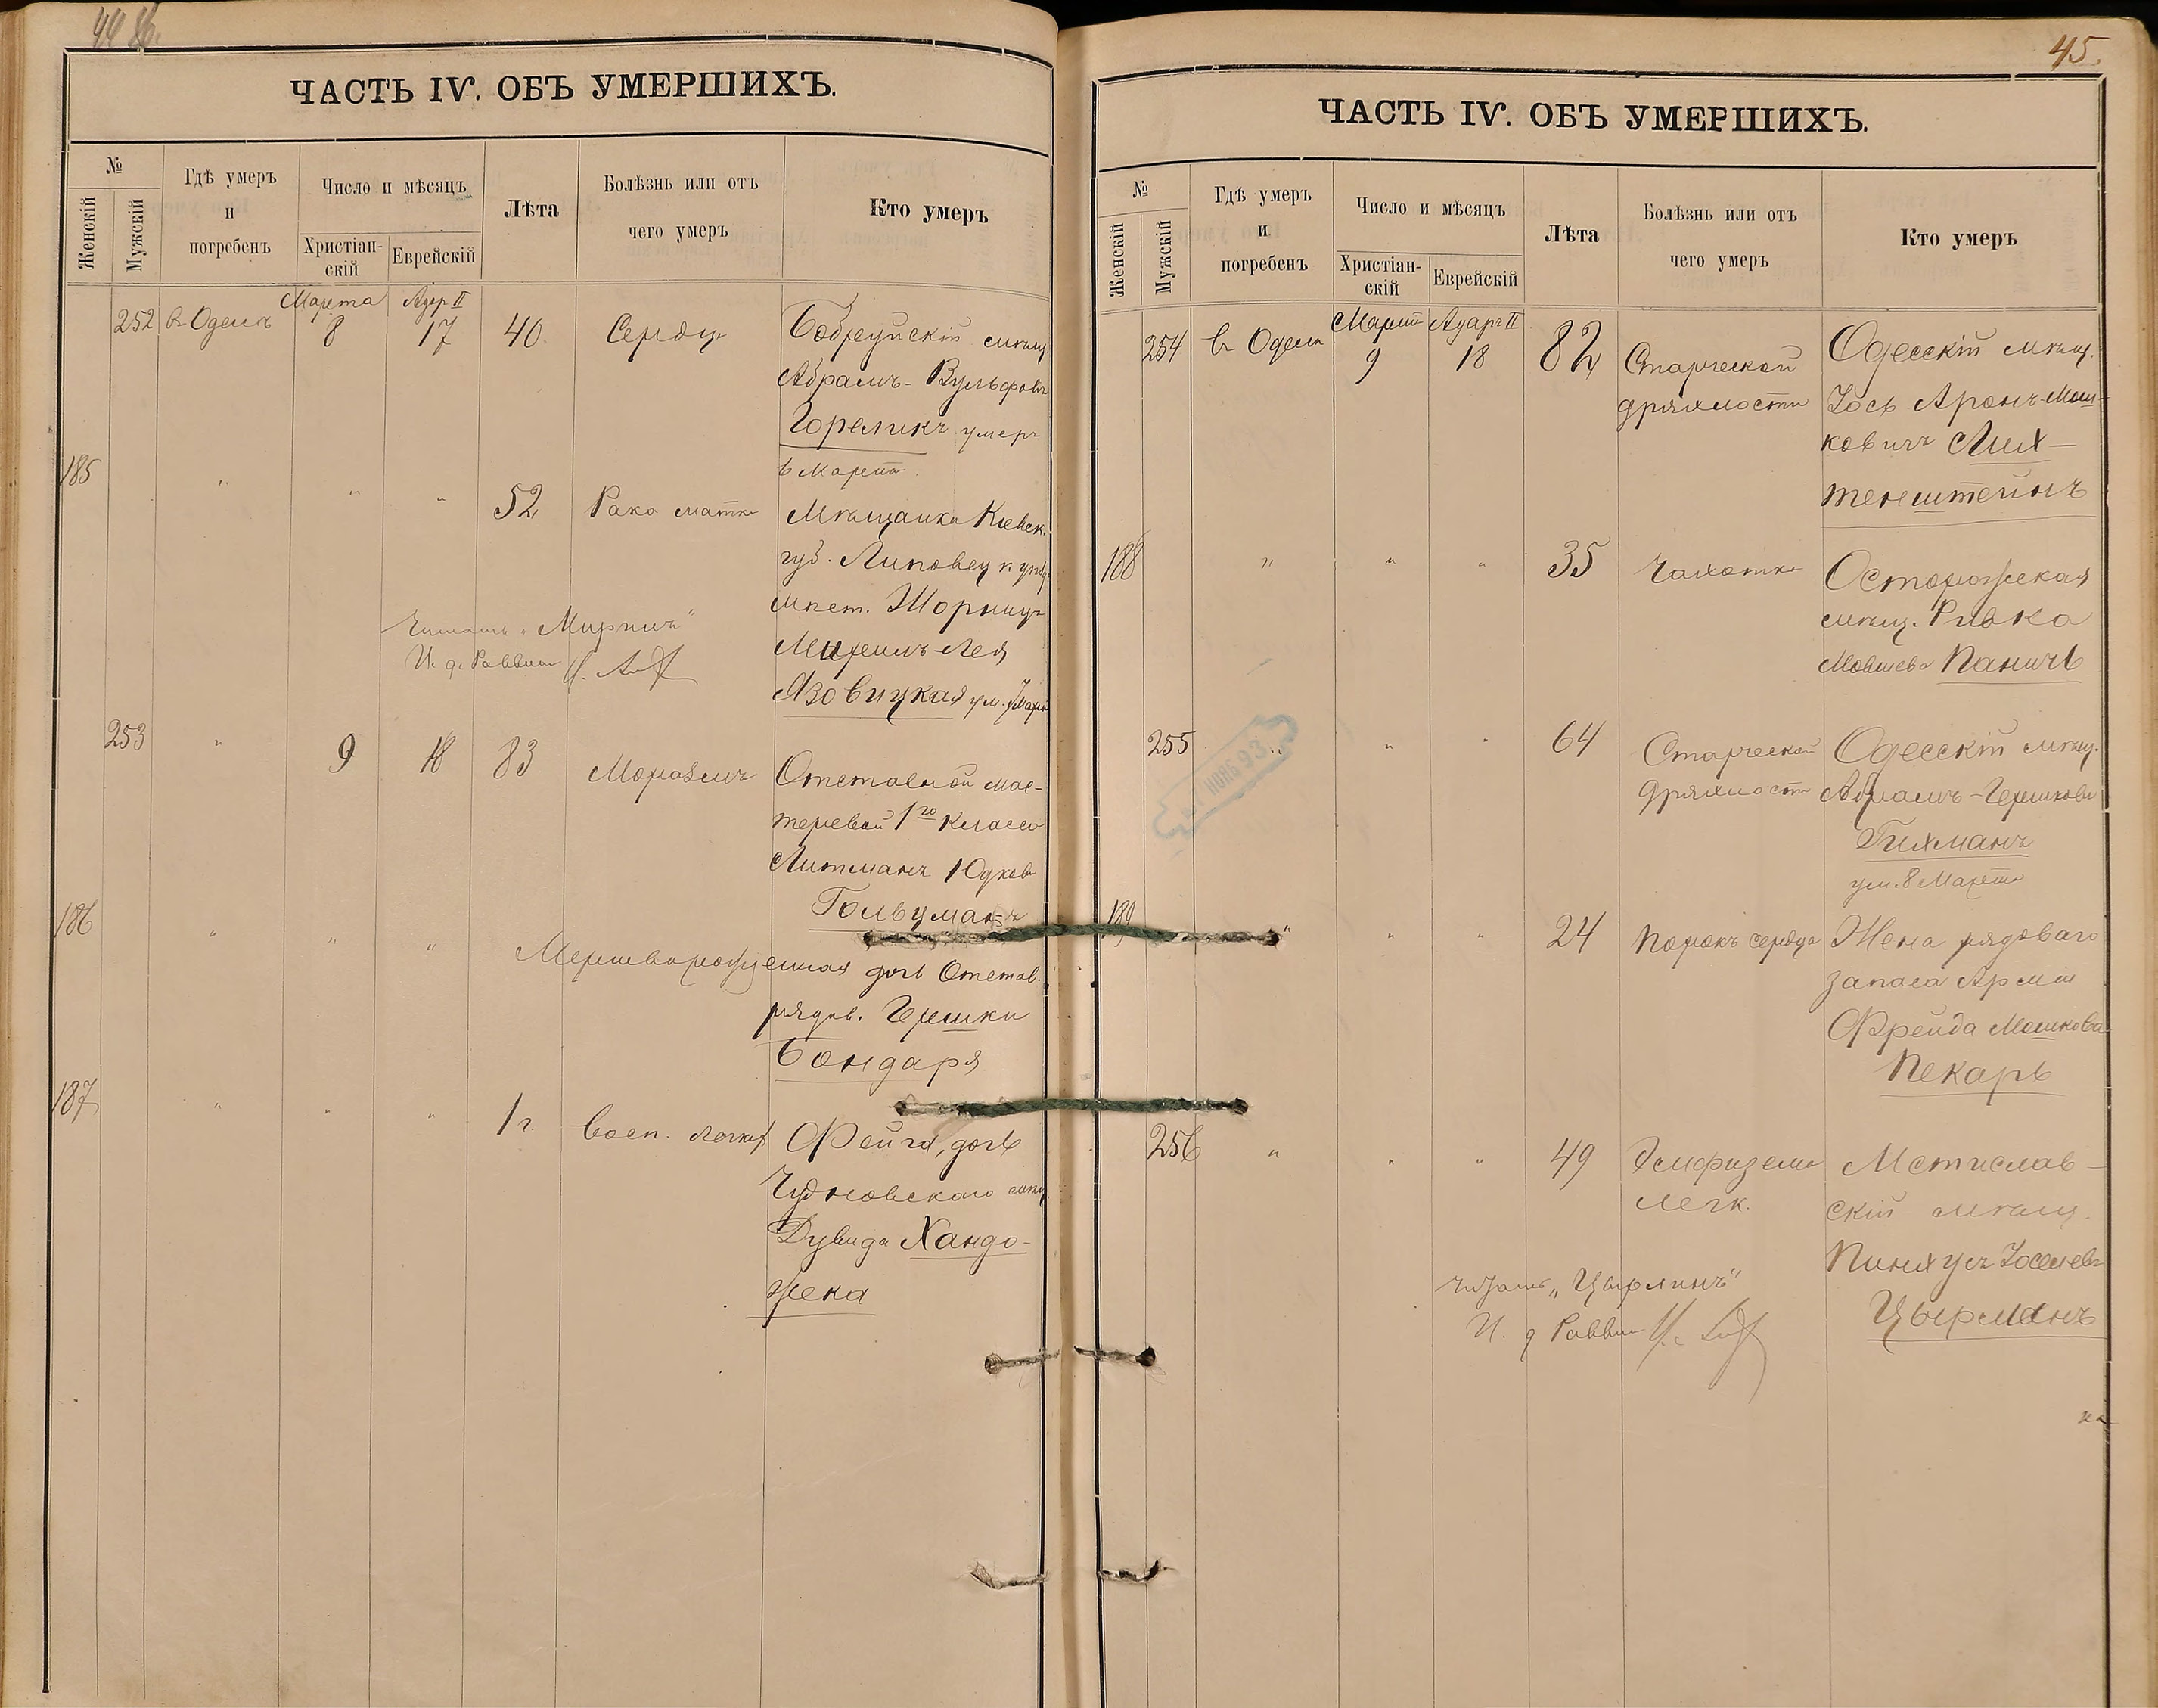 ЧАСТЬ IV. ОБЪ УМЕРШИХЪ.
№
Женскій
Мужскій
Гдѣ умеръ
и
погребенъ
Число и мѣсяцъ
Христіан-
скій
Еврейскій
Лѣта
Болѣзнь или отъ
чего умеръ
Кто умеръ
Марта Адар II
252 8 17 40 Сердца
Бобруйскій мѣщ.
Абрамъ-Вульфовъ
Гореликъ умеръ
6 Марта.
185 " " " 52 Рака матки
Мѣщанка Кіевск.
губ. Липовец к. уѣзд.
мѣст. Жорнищ
Лея
Язовицкая ум. 7 Марта
Читать „Мирпичъ"
И. д. Раввин
253 " 9 18 83
Отставной мас-
теровой 1го класса
Литманъ Юдков
Гольцманъ
186 " " " Мертворожденная дочь Отстав.
рядов. Гершки
Бондаря
187 " " " 1 г. Восп. легких
Фейга, дочь
Чудновскаго мѣщ.
Дувида Хандо-
жека
45.
ЧАСТЬ IV. ОБЪ УМЕРШИХЪ.
№
Женскій
Мужскій
Гдѣ умеръ
и
погребенъ
Число и мѣсяцъ
Христіан-
скій
Еврейскій
Лѣта
Болѣзнь или отъ
чего умеръ
Кто умеръ
Марта Адаръ II
254 9 18 82 Старческой
дряхлости
Одесскій мѣщ.
Іось Аронъ-Мош-
ковичъ Лих-
тенштейнъ
188 " " " 35 Чахотка
Острожская
мѣщ. Ривка
Мовшева Паничъ
255 " " " 64 Старческой
дряхлости
Одесскій мѣщ.
Абрамъ-Гершковъ
Гихманъ
ум. 8 Марта
189 " " " 24 Порокъ сердца
Жена рядоваго
запаса Арміи
Фрейда Мошкова
Пекарь
256 " " " 49 Эмфизема
легк.
Мстислав-
скій мѣщ.
Пинхусъ Іоселевъ
Цырманъ
Читать „Цырлинъ"
И. д. Раввин